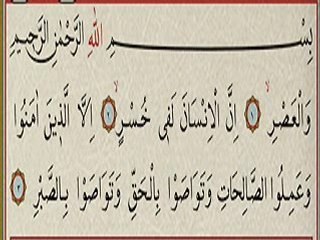 بِسْمِ اللّٰهِ الرَّحْمٰنِ الرَّحِيمِ
وَالْعَصْرِۙ ﴿١﴾ اِنَّ الْاِنْسَانَ لَفٖى خُسْرٍۙ ﴿٢﴾ اِلَّا الَّذٖينَ اٰمَنُوا
وَعَمِلُوا الصَّالِحَاتِ وَتَوَاصَوْا بِالْحَقِّ وَتَوَاصَوْا بِالصَّبْرِ ﴿٣﴾